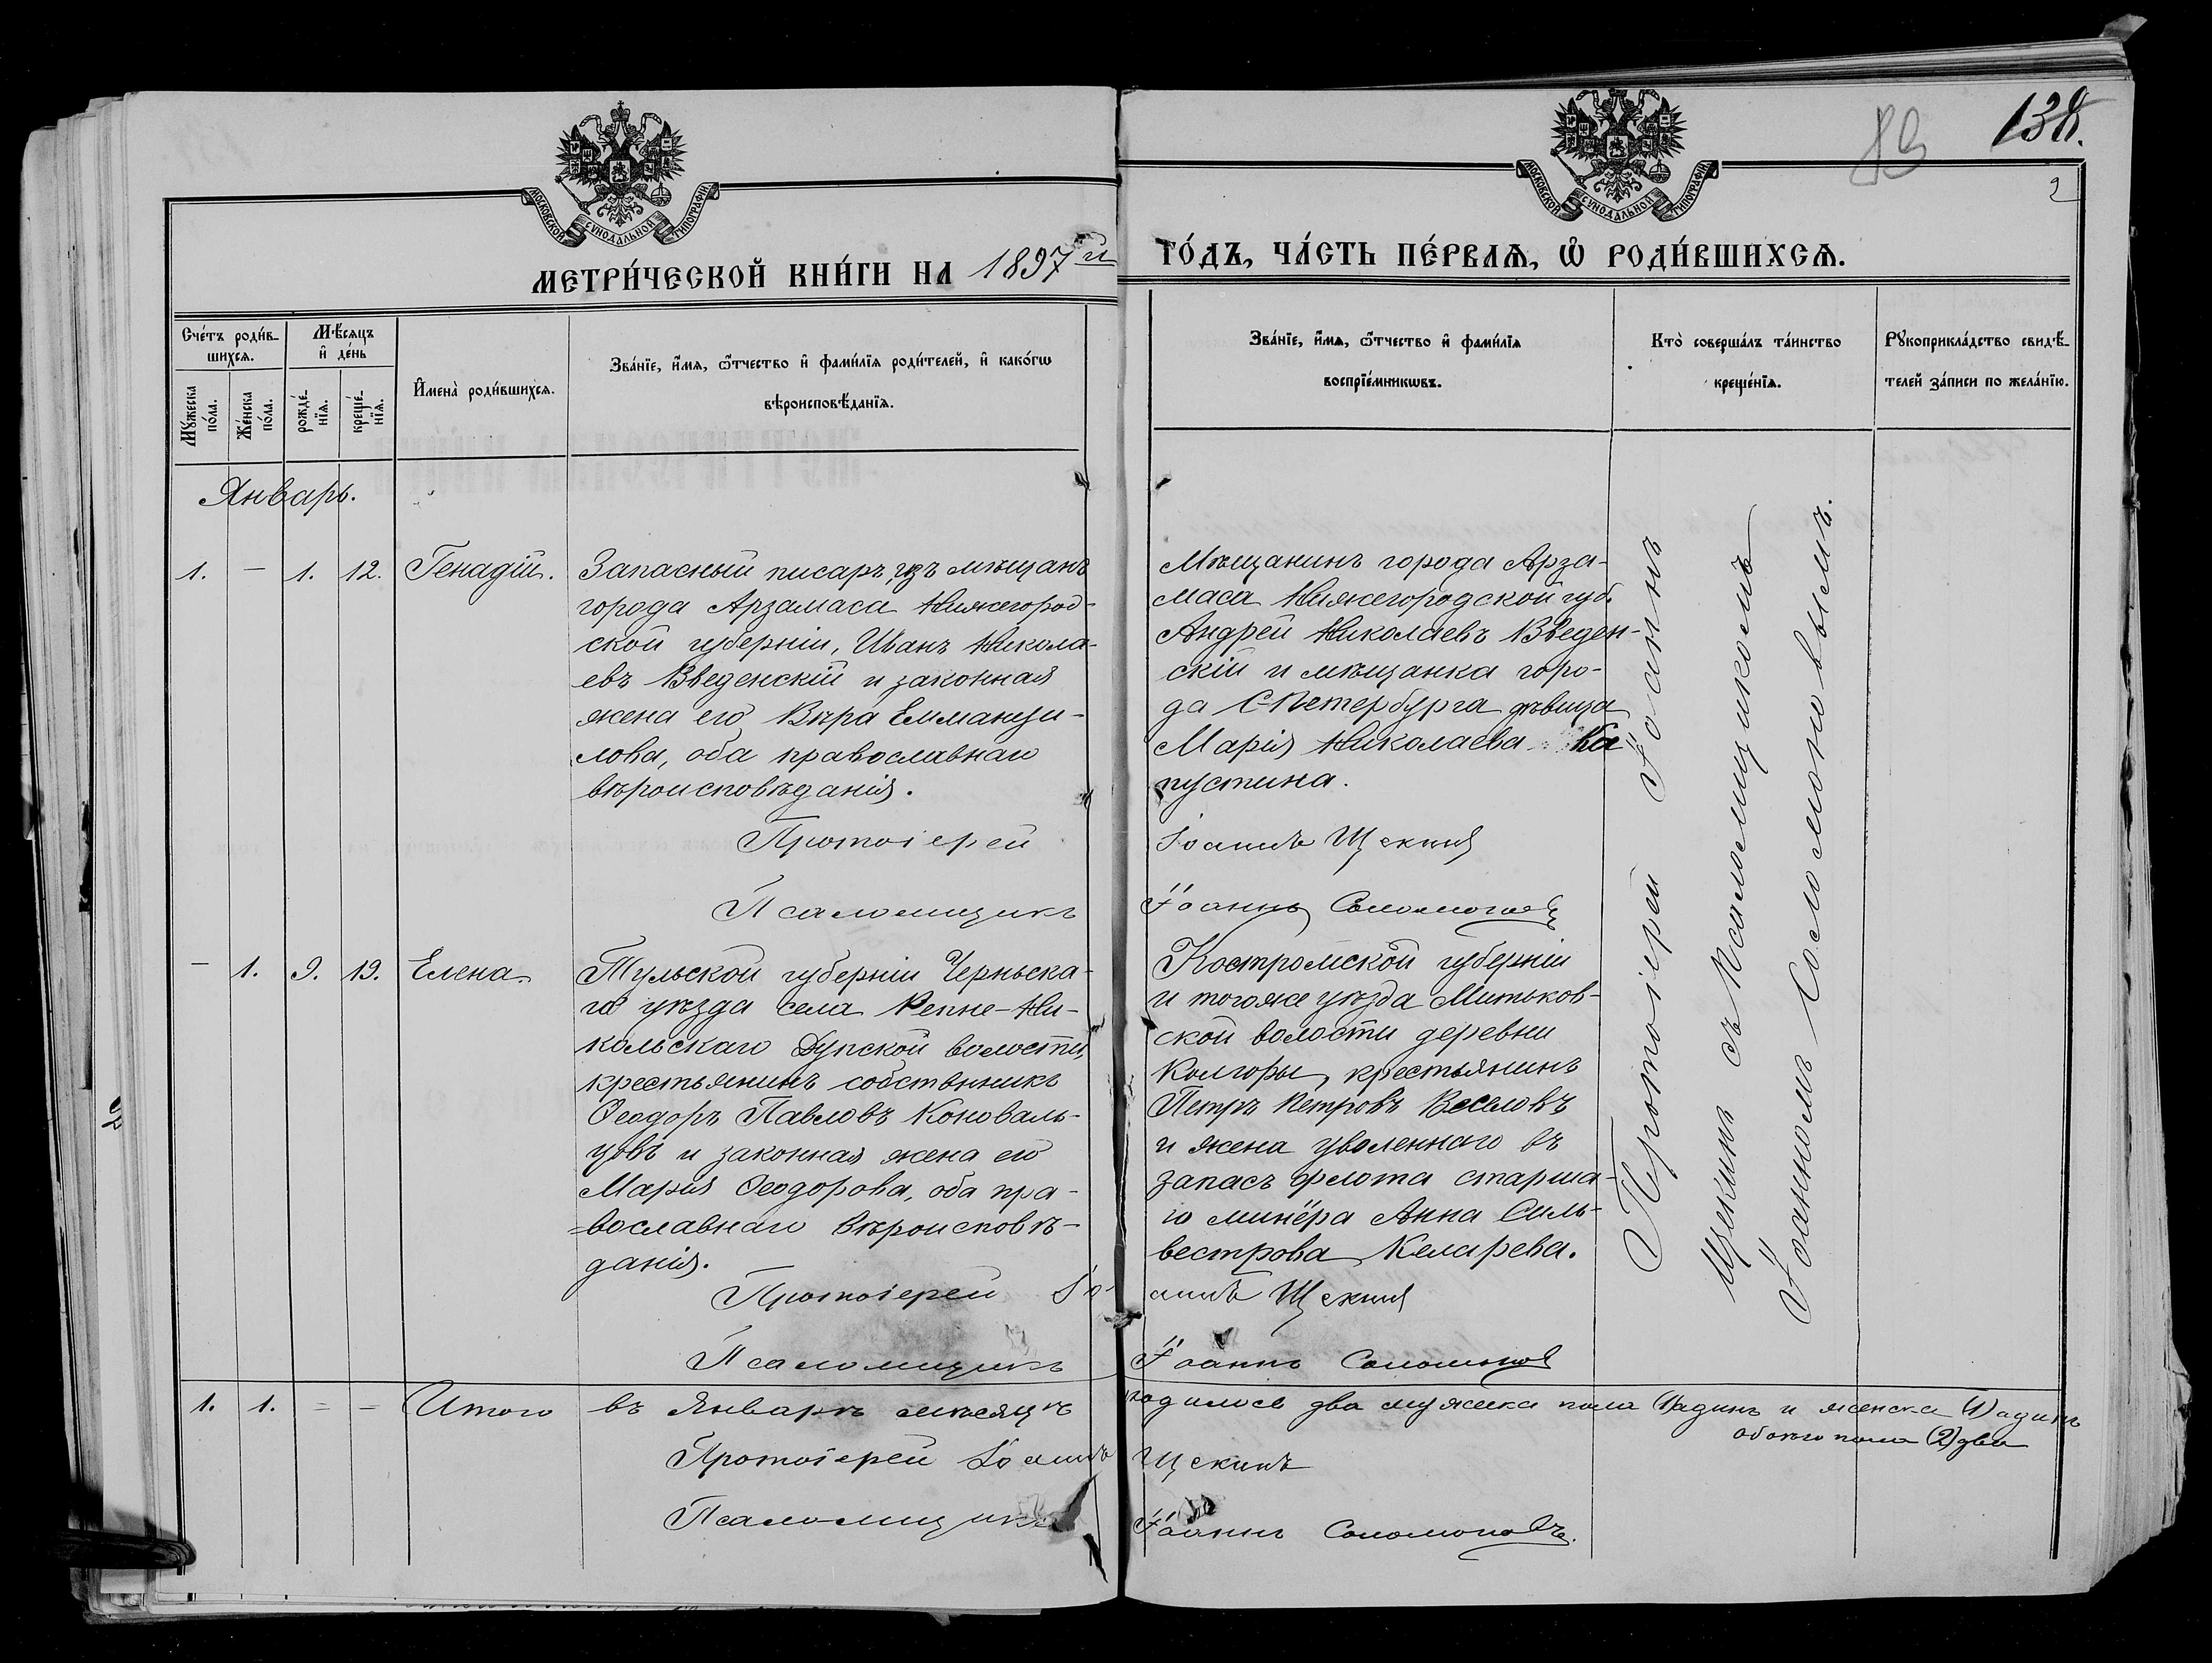 138.
83
2
МОСКОВСКОЙ СѴНОДАЛЬНОЙ ТИПОГРАФІИ
МОСКОВСКОЙ СѴНОДАЛЬНОЙ ТИПОГРАФІИ
МЕТРИ́ЧЕСКОЙ КНИ́ГИ НА 1897й ГО́ДЪ, ЧА́СТЬ ПЕ́РВАѦ, Ѽ РОДИ́ВШИХСѦ.
Сче́тъ роди́в-
шихсѧ.
Мꙋ́жеска по́ла.
Же́нска по́ла.
Мѣ́сяцъ
и҆ де́нь
рожде́-
нїѧ.
креще́-
нїѧ.
И҆мена̀ роди́вшихсѧ.
Зва́нїе, и҆́мѧ, ѻ҆́тчество и҆ фами́лїѧ роди́телей, и҆ како́гѡ
вѣроисповѣ́данїѧ.
Зва́нїе, и҆́мѧ, ѻ҆́тчество и҆ фами́лїѧ
воспрїе́мникѡвъ.
Кто̀ соверша́лъ та́инство
креще́нїѧ.
Рꙋкоприкла́дство свидѣ́-
телей за́писи по жела́нїю.
Январь.
1. — 1. 12. Генадій.
Запасный писарь, изъ мѣщанъ
города Арзамаса Нижегород-
ской губерніи, Иванъ Никола-
евъ Введенскій и законная
жена его Вѣра Еммануи-
лова, оба православнаго
вѣроисповѣданія.
Мѣщанинъ города Арза-
маса Нижегородской губ.
Андрей Николаевъ Введен-
скій и мѣщанка горо-
да С-Петербурга дѣвица
Марія Николаева Ка
пустина.
Протоіерей Іоаннъ Щекинъ
Псаломщикъ Іоаннъ Соломоновъ
— 1. 9. 19. Елена.
Тульской губерніи Черньска-
го уѣзда села Репне-Ни-
кольскаго Дупской волости,
крестьянинъ собственникъ
Ѳеодоръ Павловъ Коноваль-
цовъ и законная жена его
Марія Ѳеодорова, оба пра-
вославнаго вѣроисповѣ-
данія.
Костромской губерніи
и тогоже уѣзда Митьков-
ской волости деревни
Колгоры, крестьянинъ
Петръ Петровъ Веселовъ
и жена уволеннаго въ
запасъ флота старша-
го минёра Анна Силь-
вестрова Келарева.
Протоіерей Іоаннъ Щекинъ
Псаломщикъ Іоаннъ Соломоновъ
Протоіерей Іоаннъ
Щекинъ съ Псаломщикомъ
Іоанномъ Соломоновымъ.
1. 1. = = Итого въ Январѣ мѣсяцѣ родилось два мужска пола (1) адинъ и женска (1) адинъ
обоего пола (2) два
Протоіерей Іоаннъ Щекинъ
Псаломщикъ Іоаннъ Соломоновъ.
2